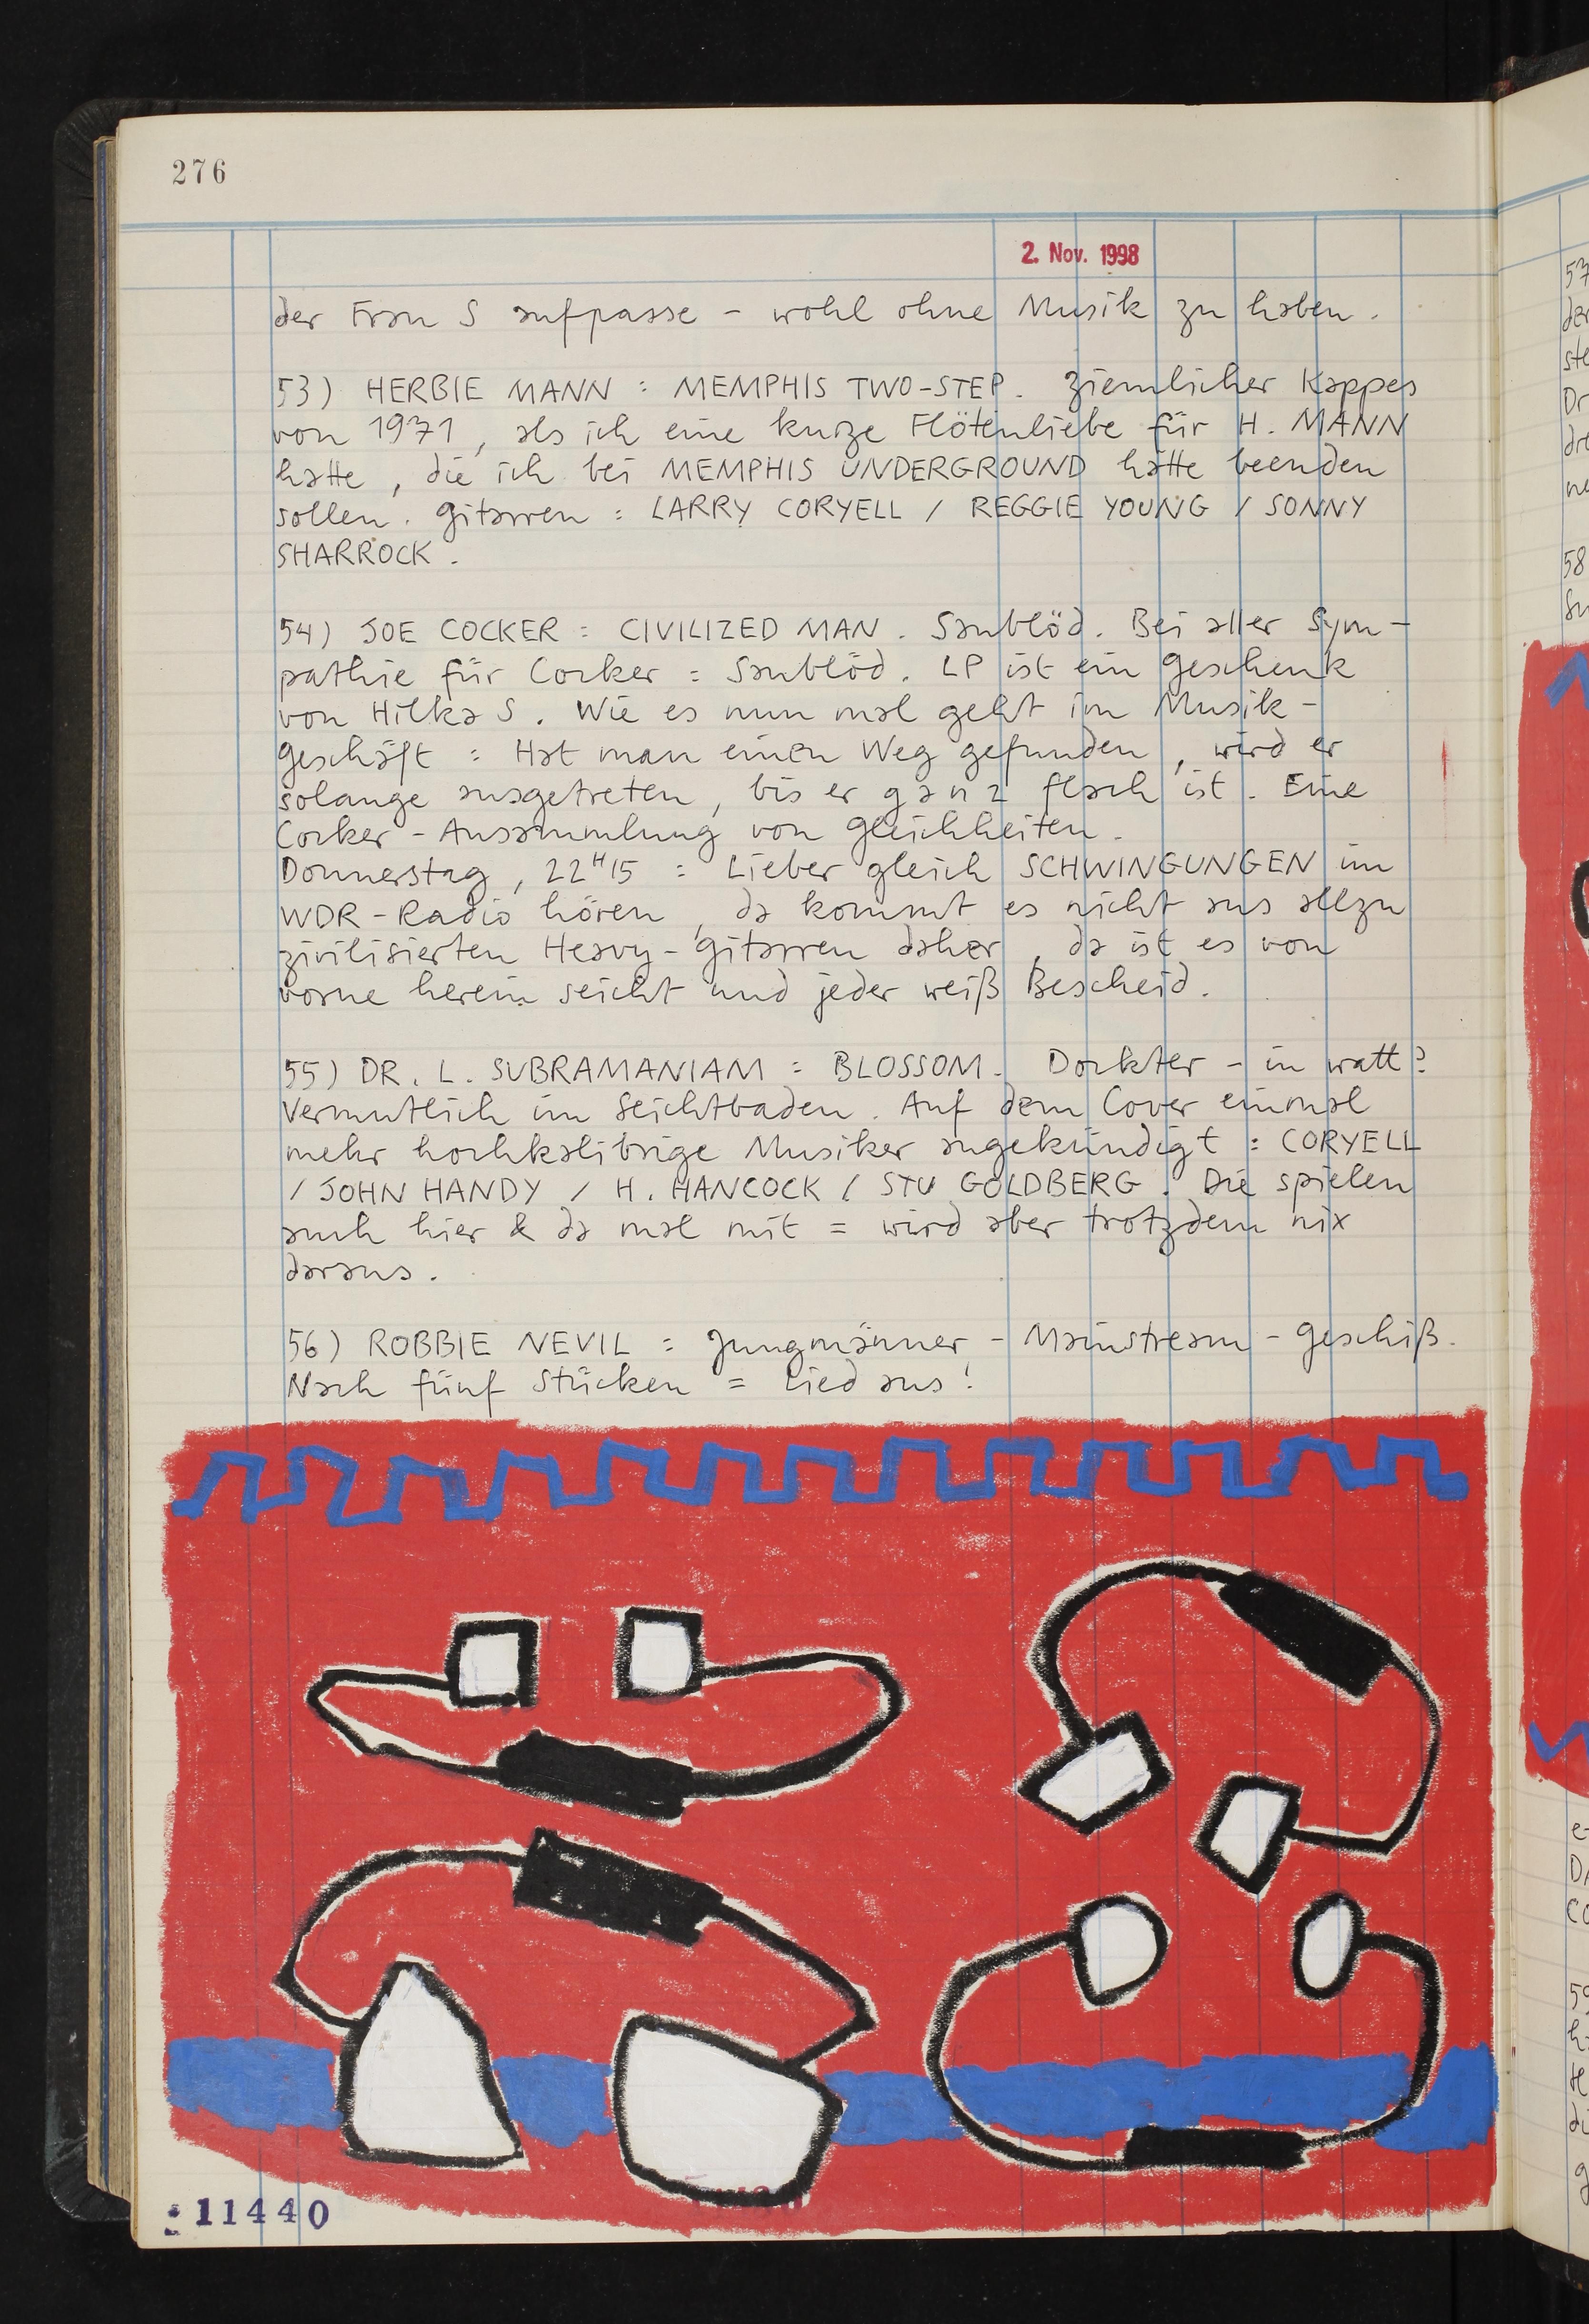 276
2. Nov. 1998
der Frau S aufpasse - wohl ohne Musik zu haben.
53) HERBIE MANN : MEMPHIS TWO-STEP. Ziemlicher Kappes
von 1971, als ich eine kurze Flötenliebe für H. MANN
hatte, die ich bei MEMPHIS UNDERGROUND hätte beenden
sollen. Gitarren : LARRY CORYELL / REGGIE YOUNG / SONNY
SHARROCK.
54) JOE COCKER : CIVILIZED MAN. Saublöd. Bei aller Sym-
pathie für Cocker = Saublöd. LP ist ein Geschenk
von Hilka S. Wie es nun mal geht im Musik-
Geschäft : Hat man einen Weg gefunden, wird er
solange ausgetreten, bis er g a n z flach ist. Eine
Cocker - Ansammlung von Gleichheiten.
Donnerstag, 22H15 : Lieber gleich SCHWINGUNGEN im
WDR-Radio hören, da kommt es nicht aus allzu
zivilisierten Heavy-Gitarren daher, da ist es von
vorne herein seicht und jeder weiß Bescheid.
55) DR. L. SUBRAMANIAM : BLOSSOM. Dockter - in watt?
Vermutlich im Seichtbaden. Auf dem Cover einmal
mehr hochkalibrige Musiker angekündigt : CORYELL
/ JOHN HANDY / H. HANCOCK / STU GOLDBERG. Die spielen
auch hier & da mal mit = wird aber trotzdem nix
daraus.
56) ROBBIE NEVIL : Jungmänner - Mainstream - Geschiß.
Nach fünf Stücken = Lied aus!
11440
57
58